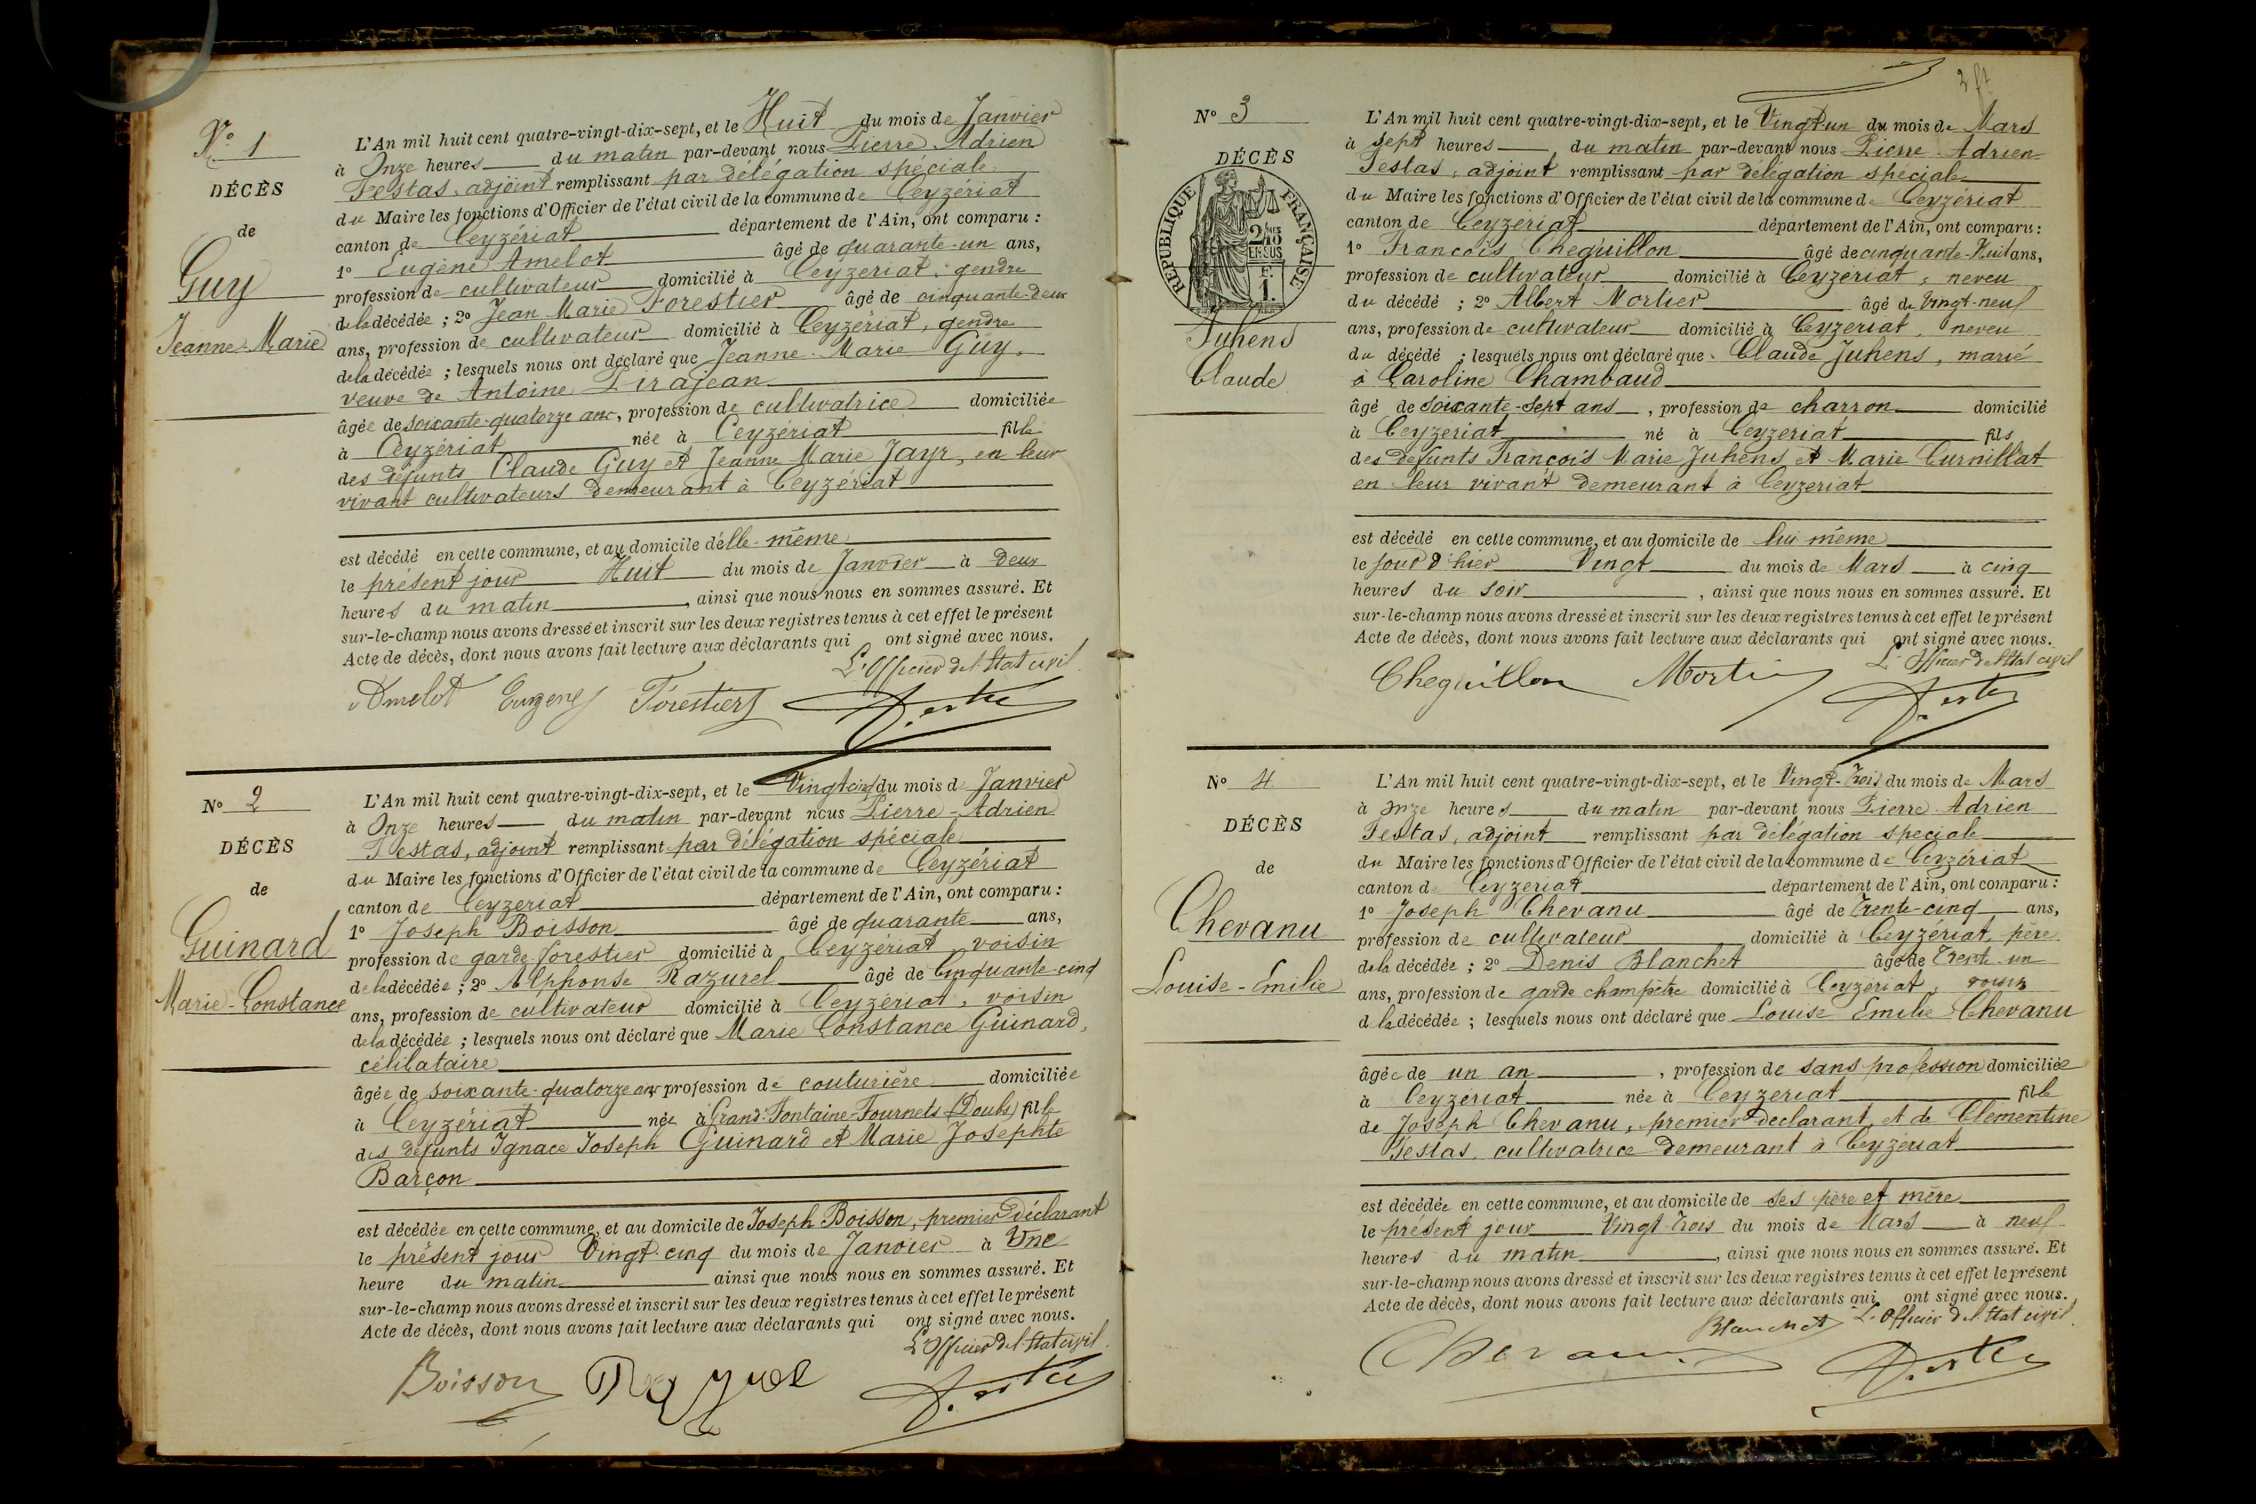 N° 1
DÉCÈS
de
Guy
Jeanne-Marie
L'An mil huit cent quatre-vingt-dix-sept, et le Huit du mois de Janvier
à Onze heures du matin par-devant nous Pierre Adrien
Festas, adjoint remplissant par délégation spéciale
du Maire les fonctions d'Officier de l'état civil de la commune de Ceyzériat
canton de Ceyzériat département de l'Ain, ont comparu :
1° Eugène Amelot âgé de quarante-un ans,
profession de cultivateur domicilié à Ceyzériat, gendre
de la décédée ; 2° Jean Marie Forestier âgé de cinquante-deux
ans, profession de cultivateur domicilié à Ceyzériat, gendre
de la décédée ; lesquels nous ont déclaré que Jeanne-Marie Guy,
veuve de Antoine Pirajean
âgée de soixante-quatorze ans, profession de cultivatrice domiciliée
à Ceyzériat née à Ceyzériat fille
des défunts Claude Guy et Jeanne Marie Jayr, en leur
vivant cultivateurs demeurant à Ceyzériat
est décédé en cette commune, et au domicile d'elle-même
le présent jour Huit du mois de Janvier à deux
heures du matin, ainsi que nous nous en sommes assuré. Et
sur-le-champ nous avons dressé et inscrit sur les deux registres tenus à cet effet le présent
Acte de décès, dont nous avons fait lecture aux déclarants qui ont signé avec nous.
L'Officier de l'Etat civil
Amelot Eugene Forestier
N° 2
DÉCÈS
de
Guinard
Marie-Constance
L'An mil huit cent quatre-vingt-dix-sept, et le Vingt-cinq du mois de Janvier
à Onze heures du matin par-devant nous Pierre-Adrien
Festas, adjoint remplissant par délégation spéciale
du Maire les fonctions d'Officier de l'état civil de la commune de Ceyzériat
canton de Ceyzériat département de l'Ain, ont comparu :
1° Joseph Boisson âgé de quarante ans,
profession de garde forestier domicilié à Ceyzériat, voisin
de la décédée ; 2° Alphonse Razurel âgé de Cinquante-cinq
ans, profession de cultivateur domicilié à Ceyzériat, voisin
de la décédée ; lesquels nous ont déclaré que Marie Constance Guinard,
célibataire
âgée de soixante-quatorze ans profession de couturière domiciliée
à Ceyzériat née à Grand-Fontaine-Fournets (Doubs) fille
des défunts Ignace Joseph Guinard et Marie Josephte
Barçon
est décédée en cette commune, et au domicile de Joseph Boisson, premier déclarant
le présent jour Vingt-cinq du mois de Janvier à Une
heure du matin ainsi que nous nous en sommes assuré. Et
sur-le-champ nous avons dressé et inscrit sur les deux registres tenus à cet effet le présent
Acte de décès, dont nous avons fait lecture aux déclarants qui ont signé avec nous.
L'Officier de l'Etat civil
Boisson Razurel
N° 3
DÉCÈS
RÉPUBLIQUE FRANÇAISE
2/10 EN SUS
F. 1.
Juhens
Claude
L'An mil huit cent quatre-vingt-dix-sept, et le Vingt-un du mois de Mars
à sept heures, du matin par-devant nous Pierre-Adrien
Festas, adjoint remplissant par délégation spéciale
du Maire les fonctions d'Officier de l'état civil de la commune de Ceyzériat
canton de Ceyzériat département de l'Ain, ont comparu :
1° François Cheguillon âgé de cinquante-Huit ans,
profession de cultivateur domicilié à Ceyzériat, neveu
du décédé ; 2° Albert Mortier âgé de Vingt-neuf
ans, profession de cultivateur domicilié à Ceyzériat, neveu
du décédé ; lesquels nous ont déclaré que Claude Juhens, marié
à Caroline Chambaud
âgé de soixante-sept ans, profession de charron domicilié
à Ceyzeriat né à Ceyzeriat fils
des defunts François Marie Juhens et Marie Curnillat
en leur vivant demeurant à Ceyzeriat
est décédé en cette commune, et au domicile de lui même
le jour d'hier Vingt du mois de Mars à cinq
heures du soir, ainsi que nous nous en sommes assuré. Et
sur-le-champ nous avons dressé et inscrit sur les deux registres tenus à cet effet le présent
Acte de décès, dont nous avons fait lecture aux déclarants qui ont signé avec nous.
L'Officier de l'Etat civil
Cheguillon Mortier
N° 4
DÉCÈS
de
Chevanu
Louise-Emilie
L'An mil huit cent quatre-vingt-dix-sept, et le Vingt-Trois du mois de Mars
à onze heures du matin par-devant nous Pierre Adrien
Festas, adjoint remplissant par délégation speciale
du Maire les fonctions d'Officier de l'état civil de la commune de Ceyzériat
canton de Ceyzériat département de l'Ain, ont comparu :
1° Joseph Chevanu âgé de Trente-cinq ans,
profession de cultivateur domicilié à Ceyzériat, père
de la décédée ; 2° Denis Blanchet âgé de Trente-un
ans, profession de garde champêtre domicilié à Ceyzériat, voisin
d la décédée ; lesquels nous ont déclaré que Louise Emilie Chevanu
âgée de un an, profession de sans profession domiciliée
à Ceyzeriat née à Ceyzeriat fille
de Joseph Chevanu, premier declarant et de Clementine
Festas, cultivatrice demeurant à Ceyzériat
est décédée en cette commune, et au domicile de ses père et mère
le présent jour Vingt-Trois du mois de Mars à neuf
heures du matin, ainsi que nous nous en sommes assuré. Et
sur-le-champ nous avons dressé et inscrit sur les deux registres tenus à cet effet le présent
Acte de décès, dont nous avons fait lecture aux déclarants qui ont signé avec nous.
Blanchet L'Officier de l'Etat civil
Chevanu